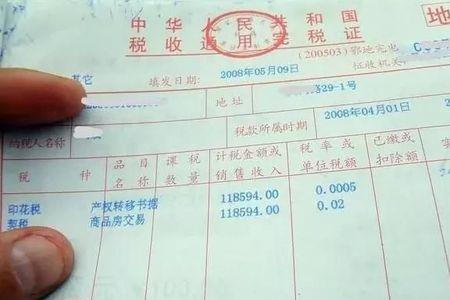 中华人民共和国
税收通用完税证
地
(200503)鄂地完电
其它
填发日期: 2008年05月09日
征收机关:
地址
29-1号
纳税人名称
税款所属时期
2008年04月01日
税 种
品目名称
课税数量
计税金额或销售收入
税率或单位税额
已缴或扣除额
实
印花税 产权转移书据 118594.00 0.0005
契税 商品房交易 118594.00 0.02